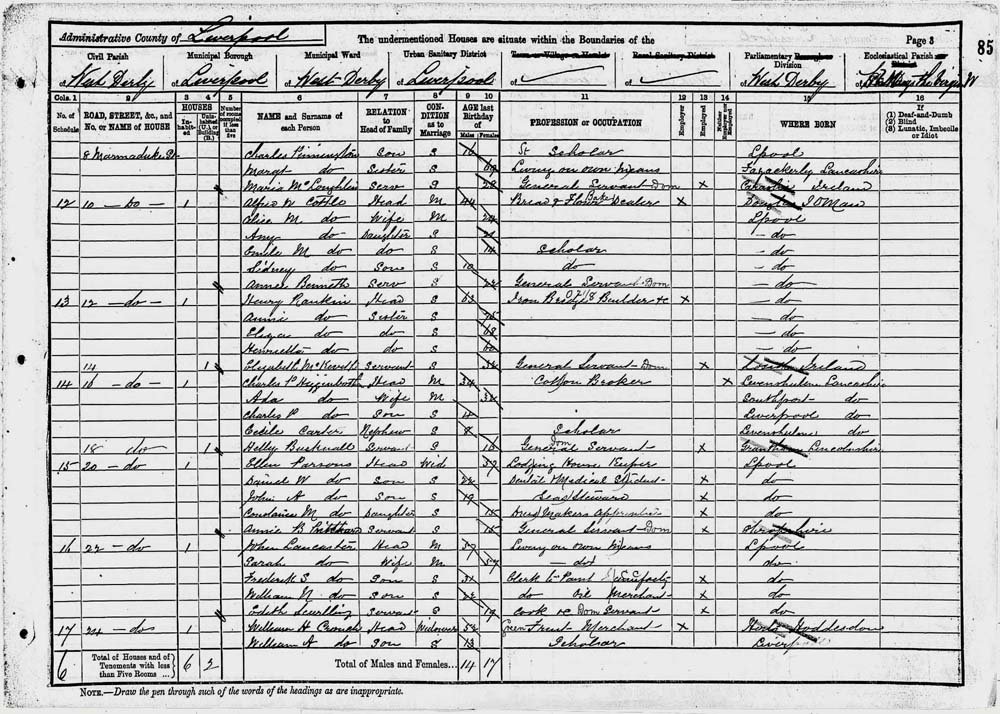 Administrative County of Liverpool The undermentioned Houses are situate within the Boundaries of the Page 3 85
Civil Parish Municipal Borough Municipal Ward Urban Sanitary District Town or Village or Hamlet Rural Sanitary District Parliamentary Borough or Division Ecclesiastical Parish or District
of West Derby of Liverpool of West Derby of Liverpool of of of West Derby of
Cols. 1 2 3 4 5 6 7 8 9 10 11 12 13 14 15 16
No. of Schedule ROAD, STREET, &c., and No. or NAME of HOUSE HOUSES Inhabited Uninhabited (U.), or Building (B.) Number of rooms occupied if less than five NAME and Surname of each Person RELATION to Head of Family CONDITION as to Marriage AGE last Birthday of Males Females PROFESSION or OCCUPATION Employer Employed Neither Employer nor Employed WHERE BORN (1) Deaf-and-Dumb (2) Blind (3) Lunatic, Imbecile or Idiot
8 Marmaduke St Charles Pinnington Son S 16 Scholar Lpool
Margt do Sister S Living on own Means Lancashire
Maria McLoughlin Serv S 28 General Servant Dom x Ireland
12 10 - Do - 1 Alfred W Cottle Head M 44 Bread & Flour Dealer x Douglas I O Man
Alice M. do Wife M Lpool
Amy do Daughter S 21 - do
Emile M do do S 14 Scholar - do
Sidney do Son S 10 do - do
Annie Bennett Serv S General Servant Dom - do
13 12 - do - 1 Henry Rankin Head S 63 Iron Bridge Builder &c x - do
Annie do Sister S - do
Eliza do do S 68 - do
Henrietta do do S 60 - do
14 1 Elizabeth Servant S General Servant Dom x Ireland
14 16 - do - 1 Charles P Higginbotham Head M 34 Cotton Broker x Levenshulme Lancashire
Ada do Wife M Southport do
Charles P. do Son S 4 Liverpool do
Cecile Carter Nephew S 8 Scholar Levenshulme do
18 do 1 Hetty Servant S 16 General Dom Servant x Grantham Lincolnshire
15 20 - do 1 Ellen Parsons Head Wid 57 Lodging House Keeper Lpool
Daniel W do Son S 22 Dental & Medical Student x do
John A do Son S 19 Steward x do
Constance M. do Daughter S Dress Makers Apprentice x do
Annie B. Servant S General Servant Dom x Shropshire
16 22 - do 1 John Lancaster Head M 57 Living on own Means Lpool
Sarah do Wife M 57 - do do
Frederick S. do Son S 31 Clerk to Paint x do
William do Son S 22 do Oil Merchant x do
Edith Servant S 19 Cook &c Dom Servant x do
17 24 - do 1 William H Crouch Head Widower 52 Green Fruit Merchant x Hoddesdon
William A do Son S 13 Scholar Liverp
6 Total of Houses and of Tenements with less than Five Rooms ... 6 2 Total of Males and Females... 14 17
NOTE.—Draw the pen through such of the words of the headings as are inappropriate.